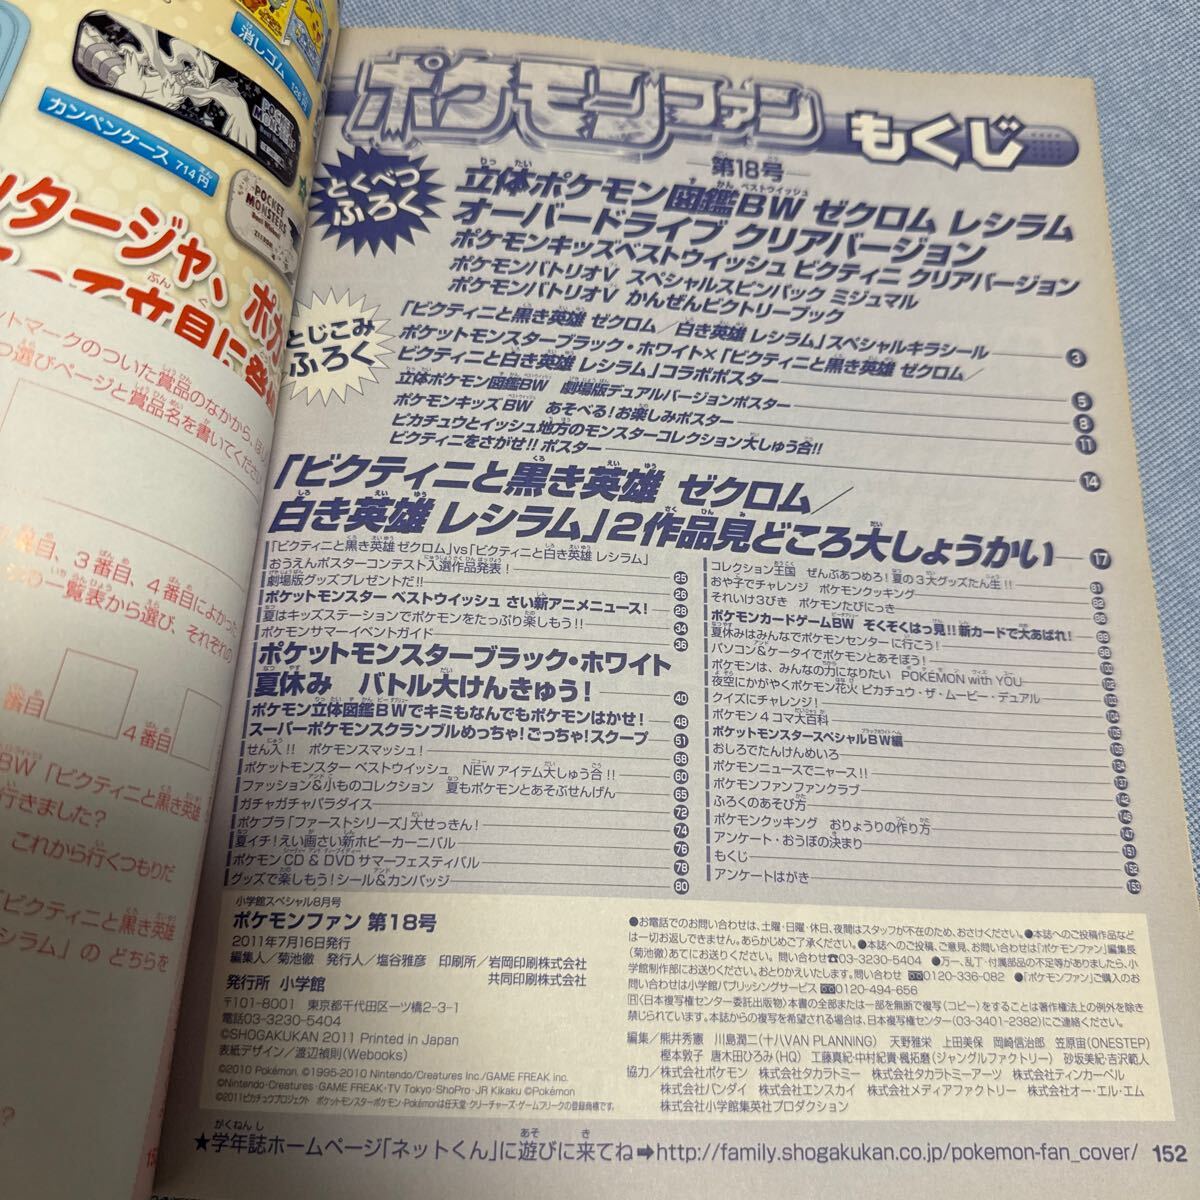 消しゴム 126円
カンペンケース 714円
POCKET MONSTERS
ンタージャ、ポカ
ットマークのついた賞品のなかから、ほし
つ選びページと賞品名を書いてください
番目、3番目、4番目によかった
一覧表から選び、それぞれの
番目
4番目
BW「ビクティニと黒き英雄
行きました?
これから行くつもりだ
「ビクティニと黒き英雄
シラム」の どちらを
ポケモンファン もくじ
第18号
とくべつふろく
立体ポケモン図鑑BW ゼクロム レシラム
オーバードライブ クリアバージョン
ポケモンキッズベストウイッシュ ビクティニ クリアバージョン
ポケモンバトリオV スペシャルスピンパック ミジュマル
ポケモンバトリオV かんぜんビクトリーブック
とじこみふろく
「ビクティニと黒き英雄 ゼクロム/白き英雄 レシラム」スペシャルキラシール 3
ポケットモンスターブラック・ホワイト×「ビクティニと黒き英雄 ゼクロム/
ビクティニと白き英雄 レシラム」コラボポスター 5
立体ポケモン図鑑BW 劇場版デュアルバージョンポスター 8
ポケモンキッズBW あそべる!お楽しみポスター 11
ピカチュウとイッシュ地方のモンスターコレクション大しゅう合!!
ビクティニをさがせ!! ポスター 14
「ビクティニと黒き英雄 ゼクロム/
白き英雄 レシラム」2作品見どころ大しょうかい 17
「ビクティニと黒き英雄 ゼクロム」vs「ビクティニと白き英雄 レシラム」
おうえんポスターコンテスト入選作品発表! 25
劇場版グッズプレゼントだ!! 26
ポケットモンスター ベストウイッシュ さい新アニメニュース! 28
夏はキッズステーションでポケモンをたっぷり楽しもう!! 34
ポケモンサマーイベントガイド 36
ポケットモンスターブラック・ホワイト
夏休み バトル大けんきゅう! 40
ポケモン立体図鑑BWでキミもなんでもポケモンはかせ! 48
スーパーポケモンスクランブルめっちゃ!ごっちゃ!スクープ 51
せん入!! ポケモンスマッシュ! 58
ポケットモンスター ベストウイッシュ NEWアイテム大しゅう合!! 60
ファッション&小ものコレクション 夏もポケモンとあそぶせんげん 65
ガチャガチャパラダイス 72
ポケプラ「ファーストシリーズ」大せっきん! 74
夏イチ!えい画さい新ホビーカーニバル 76
ポケモンCD&DVDサマーフェスティバル 78
グッズで楽しもう!シール&カンバッジ 80
コレクション王国 ぜんぶあつめろ!夏の3大グッズたん生!! 81
おや子でチャレンジ ポケモンクッキング
それいけ3びき ポケモンたびにっき
ポケモンカードゲームBW ぞくぞくはつ見!!新カードで大あばれ!
夏休みはみんなでポケモンセンターに行こう!
パソコン&ケータイでポケモンとあそぼう!
ポケモンは、みんなの力になりたい POKÉMON with YOU
夜空にかがやくポケモン花火 ピカチュウ・ザ・ムービー・デュアル
クイズにチャレンジ!
ポケモン4コマ大百科
ポケットモンスタースペシャルBW編
おしろでたんけんめいろ
ポケモンニュースでニャース!!
ポケモンファンファンクラブ
ふろくのあそび方
ポケモンクッキング おりょうりの作り方 147
アンケート・おうぼの決まり 151
もくじ 152
アンケートはがき 153
小学館スペシャル8月号
ポケモンファン 第18号
2011年7月16日発行
編集人/菊池徹 発行人/塩谷雅彦 印刷所/岩岡印刷株式会社
共同印刷株式会社
発行所 小学館
〒101-8001 東京都千代田区一ツ橋2-3-1
電話03-3230-5404
©SHOGAKUKAN 2011 Printed in Japan
表紙デザイン/渡辺禎則(Webooks)
©2010 Pokémon. ©1995-2010 Nintendo/Creatures Inc./GAME FREAK inc.
©Nintendo・Creatures・GAME FREAK・TV Tokyo・ShoPro・JR Kikaku ©Pokémon
©2011ピカチュウプロジェクト ポケットモンスター・ポケモン・Pokémonは任天堂・クリーチャーズ・ゲームフリークの登録商標です。
●お電話でのお問い合わせは、土曜・日曜・休日、夜間はスタッフが不在のため、おさけください。●本誌へのご投稿作品などは一切お返しできません。あらかじめご了承ください。●本誌へのご投稿、ご意見、お問い合わせは「ポケモンファン」編集長(菊池徹)あてにお送りください。問い合わせ☎03-3230-5404 ●万一、乱丁・付録部品の不足等がありましたら、小学館制作部にお送りください。おとりかえいたします。問い合わせ 0120-336-082 ●「ポケモンファン」ご購入のお問い合わせは小学館パブリッシングサービス 0120-494-656
(日本複写権センター委託出版物)本書の全部または一部を無断で複写(コピー)をすることは著作権法上の例外を除き禁じられています。本誌からの複写を希望される場合は、日本複写権センター(03-3401-2382)にご連絡ください。
編集/熊井秀憲 川島潤二(十八VAN PLANNING) 天野雅栄 上田美保 岡崎信治郎 笠原宙(ONESTEP)
樫本敦子 唐木田ひろみ(HQ) 工藤真紀・中村紀貴・楓拓磨(ジャングルファクトリー) 砂坂美紀・吉沢範人
協力/株式会社ポケモン 株式会社タカラトミー 株式会社タカラトミーアーツ 株式会社ティンカーベル
株式会社バンダイ 株式会社エンスカイ 株式会社メディアファクトリー 株式会社オー・エル・エム
株式会社小学館集英社プロダクション
★学年誌ホームページ「ネットくん」に遊びに来てね➡http://family.shogakukan.co.jp/pokemon-fan_cover/ 152